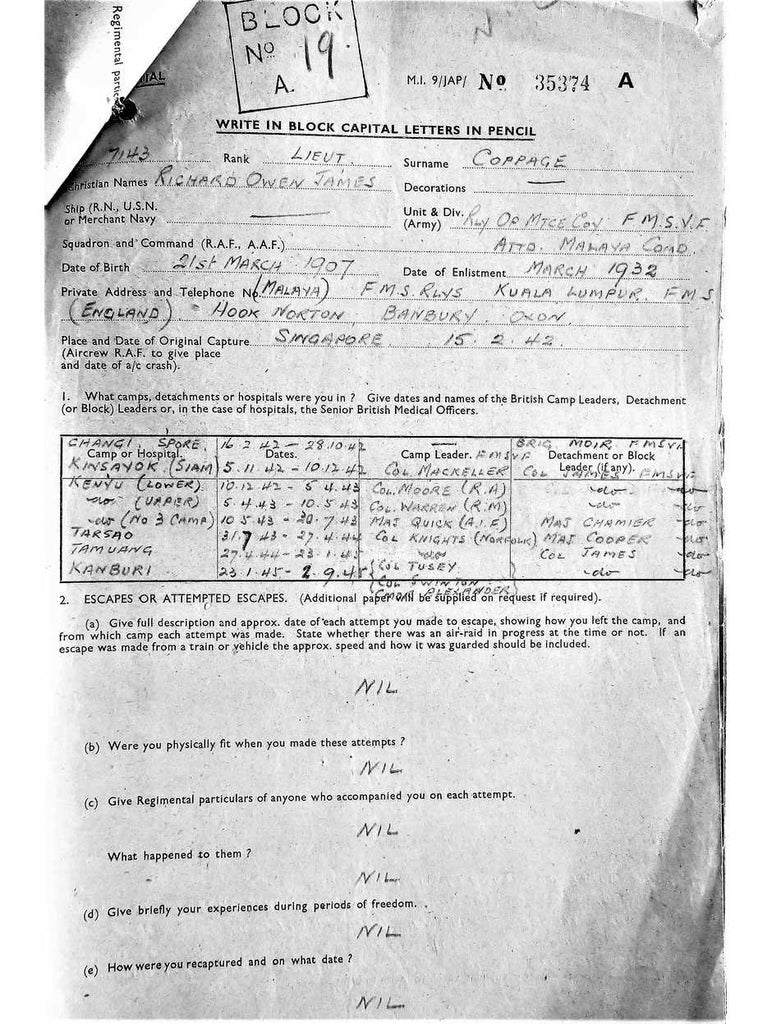 Regimental partic
BLOCK
No 19.
A.
IAL
M.I. 9/JAP/ No 35374 A
WRITE IN BLOCK CAPITAL LETTERS IN PENCIL
7143 Rank LIEUT. Surname COPPAGE
Christian Names RICHARD OWEN JAMES Decorations —
Ship (R.N., U.S.N. or Merchant Navy —
Unit & Div. (Army) RLY OP MTCE COY F.M.S.V.F
Squadron and Command (R.A.F., A.A.F.) ATTD. MALAYA COMD.
Date of Birth 21st MARCH 1907 Date of Enlistment MARCH 1932
Private Address and Telephone No. (MALAYA) F.M.S. RLYS KUALA LUMPUR. F.M.S
(ENGLAND) HOOK NORTON, BANBURY, OXON.
Place and Date of Original Capture SINGAPORE 15.2.42.
(Aircrew R.A.F. to give place
and date of a/c crash).
1. What camps, detachments or hospitals were you in ? Give dates and names of the British Camp Leaders, Detachment
(or Block) Leaders or, in the case of hospitals, the Senior British Medical Officers.
CHANGI, SPORE, 16.2.42 – 28.10.42 — BRIG. MOIR, FMSVF
Camp or Hospital. Dates. Camp Leader. FMSVF Detachment or Block
KINSAYOK (SIAM) 5.11.42 – 10.12.42 COL. MACKELLER COL JAMES FMSVF
Leader (if any).
KENYU (LOWER) 10.12.42 – 5.4.43 COL. MOORE (R.A) do do
do (UPPER) 5.4.43 – 10.5.43 COL. WARREN (R.M) do do
do (No 3 CAMP) 10.5.43 – 20.7.43 MAJ QUICK (A.I.F) MAJ CHAMIER do
TARSAO 31.7.43 – 27.4.44 COL KNIGHTS (NORFOLK) MAJ COOPER do
TAMUANG 27.4.44 – 23.1.45 do COL JAMES do
KANBURI 23.1.45 – 2.9.45 { COL TUSEY. } do do
COL SWINTON
ALEXANDER
2. ESCAPES OR ATTEMPTED ESCAPES. (Additional paper will be supplied on request if required).
(a) Give full description and approx. date of each attempt you made to escape, showing how you left the camp, and
from which camp each attempt was made. State whether there was an air-raid in progress at the time or not. If an
escape was made from a train or vehicle the approx. speed and how it was guarded should be included.
NIL
(b) Were you physically fit when you made these attempts ?
NIL
(c) Give Regimental particulars of anyone who accompanied you on each attempt.
NIL
What happened to them ?
NIL
(d) Give briefly your experiences during periods of freedom.
NIL
(e) How were you recaptured and on what date ?
NIL